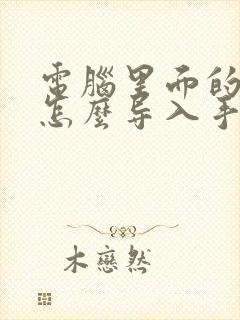 電腦里面的
怎麼导入手
木戀然